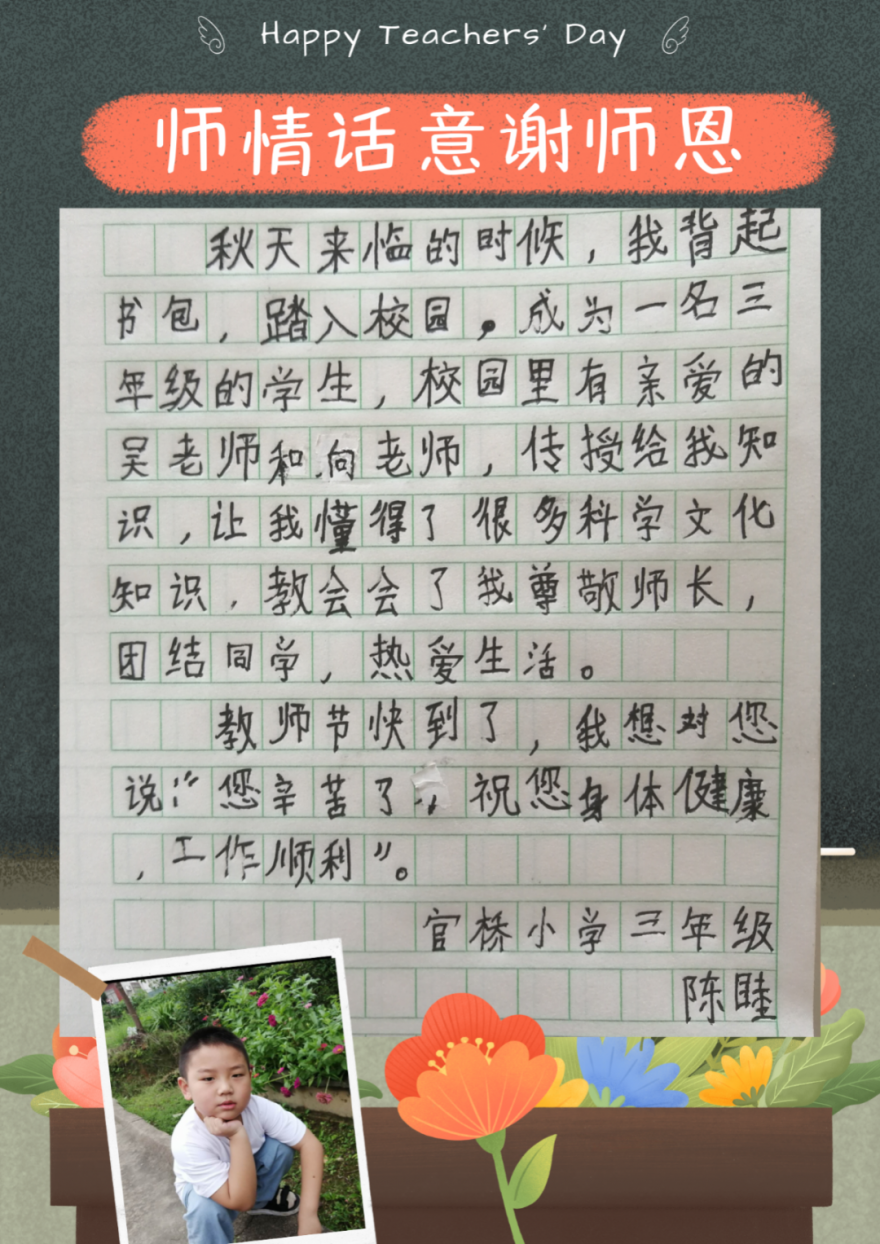 Happy Teachers' Day
师情话意谢师恩
秋天来临的时候，我背起
书包，踏入校园，成为一名三
年级的学生，校园里有亲爱的
吴老师和向老师，传授给我知
识，让我懂得了很多科学文化
知识，教会会了我尊敬师长，
团结同学，热爱生活。
教师节快到了，我想对您
说：“您辛苦了，祝您身体健康
，工作顺利”。
官桥小学三年级
陈睦